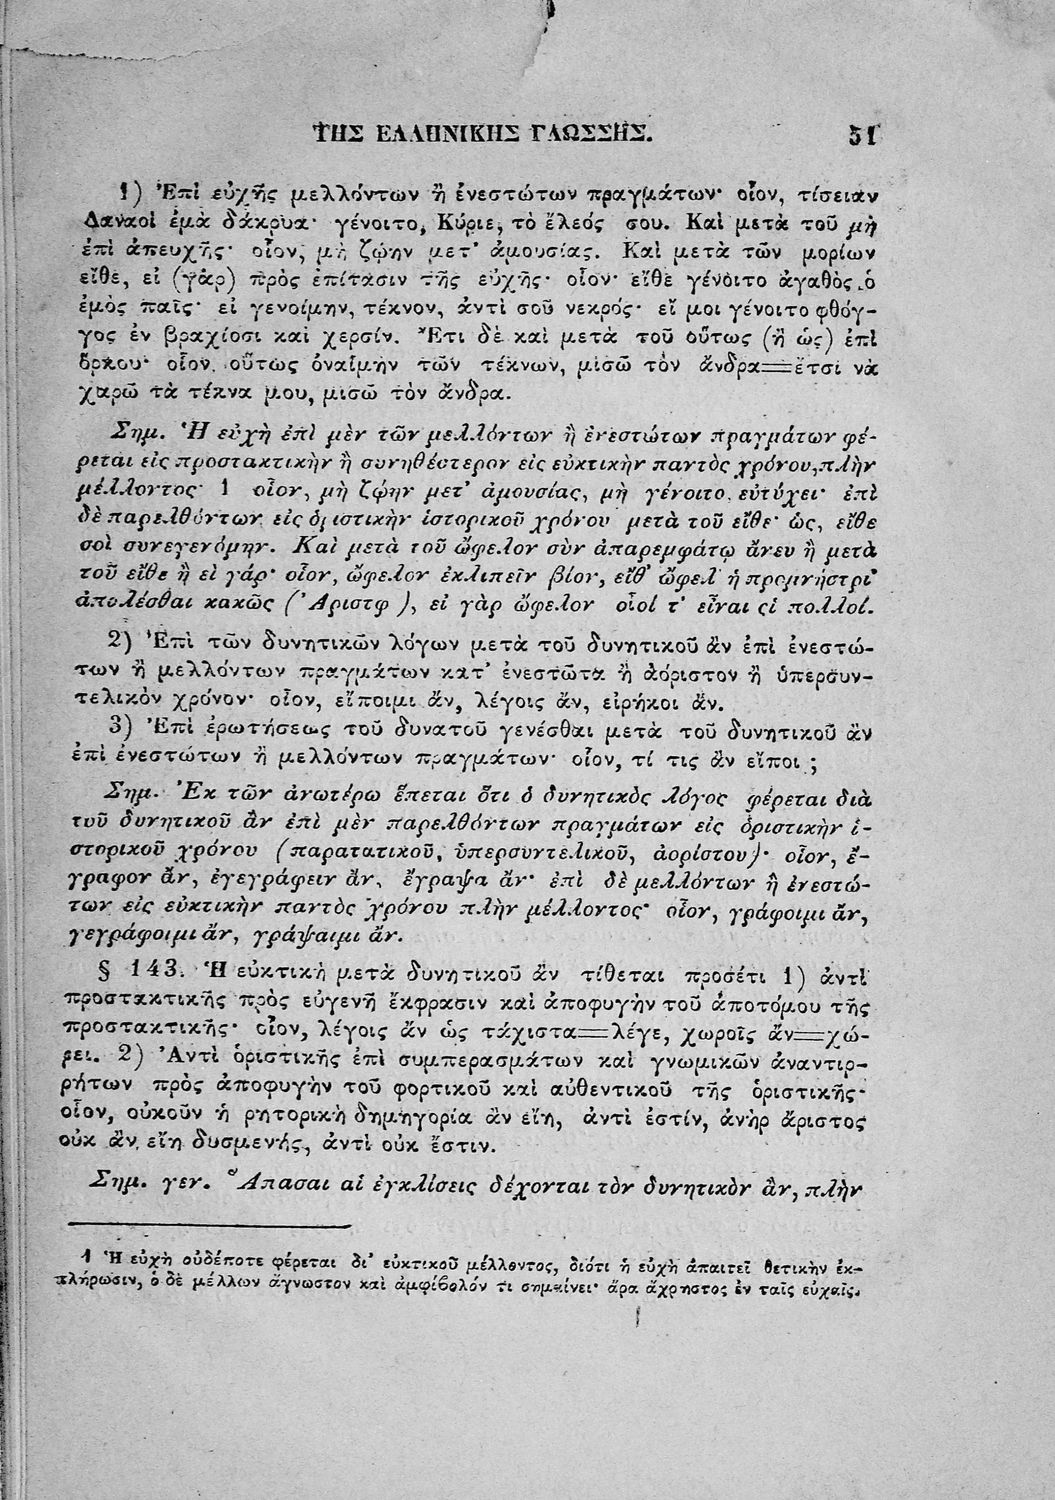 ΤΗΣ ΕΛΛΗΝΙΚΗΣ ΓΛΩΣΣΗΣ. 51
1) Ἐπὶ εὐχῆς μελλόντων ἢ ἐνεστώτων πραγμάτων· οἷον, τίσειαν
Δαναοὶ ἐμὰ δάκρυα· γένοιτο, Κύριε, τὸ ἔλεός σου. Καὶ μετὰ τοῦ μὴ
ἐπὶ ἀπευχῆς· οἷον, μὴ ζῴην μετ' ἀμουσίας. Καὶ μετὰ τῶν μορίων
εἴθε, εἰ (γὰρ) πρὸς ἐπίτασιν τῆς εὐχῆς· οἷον· εἴθε γένοιτο ἀγαθὸς ὁ
ἐμὸς παῖς· εἰ γενοίμην, τέκνον, ἀντὶ σοῦ νεκρός· εἴ μοι γένοιτο φθόγ-
γος ἐν βραχίοσι καὶ χερσίν. Ἔτι δὲ καὶ μετὰ τοῦ οὕτως (ἢ ὡς) ἐπὶ
ὅρκου· οἷον, οὕτως ὀναίμην τῶν τέκνων, μισῶ τὸν ἄνδρα=ἔτσι νὰ
χαρῶ τὰ τέκνα μου, μισῶ τὸν ἄνδρα.
Σημ. Ἡ εὐχὴ ἐπὶ μὲν τῶν μελλόντων ἢ ἐνεστώτων πραγμάτων φέ-
ρεται εἰς προστακτικὴν ἢ συνηθέστερον εἰς εὐκτικὴν παντὸς χρόνου, πλὴν
μέλλοντος· 1 οἷον, μὴ ζῴην μετ' ἀμουσίας, μὴ γένοιτο, εὐτύχει· ἐπὶ
δὲ παρελθόντων εἰς ὁριστικὴν ἱστορικοῦ χρόνου μετὰ τοῦ εἴθε· ὡς, εἴθε
σοὶ συνεγενόμην. Καὶ μετὰ τοῦ ὤφελον σὺν ἀπαρεμφάτῳ ἄνευ ἢ μετὰ
τοῦ εἴθε ἢ εἰ γάρ· οἷον, ὤφελον ἐκλιπεῖν βίον, εἴθ' ὤφελ' ἡ προμνήστρι'
ἀπολέσθαι κακῶς (Ἀριστφ), εἰ γὰρ ὤφελον οἷοί τ' εἶναι οἱ πολλοί.
2) Ἐπὶ τῶν δυνητικῶν λόγων μετὰ τοῦ δυνητικοῦ ἂν ἐπὶ ἐνεστώ-
των ἢ μελλόντων πραγμάτων κατ' ἐνεστῶτα ἢ ἀόριστον ἢ ὑπερσυν-
τελικὸν χρόνον· οἷον, εἴποιμι ἄν, λέγοις ἄν, εἰρήκοι ἄν.
3) Ἐπὶ ἐρωτήσεως τοῦ δυνατοῦ γενέσθαι μετὰ τοῦ δυνητικοῦ ἂν
ἐπὶ ἐνεστώτων ἢ μελλόντων πραγμάτων· οἷον, τί τις ἂν εἴποι ;
Σημ. Ἐκ τῶν ἀνωτέρω ἕπεται ὅτι ὁ δυνητικὸς λόγος φέρεται διὰ
τοῦ δυνητικοῦ ἂν ἐπὶ μὲν παρελθόντων πραγμάτων εἰς ὁριστικὴν ἱ-
στορικοῦ χρόνου (παρατατικοῦ, ὑπερσυντελικοῦ, ἀορίστου)· οἷον, ἔ-
γραφον ἄν, ἐγεγράφειν ἄν, ἔγραψα ἄν· ἐπὶ δὲ μελλόντων ἢ ἐνεστώ-
των εἰς εὐκτικὴν παντὸς χρόνου πλὴν μέλλοντος· οἷον, γράφοιμι ἄν,
γεγράφοιμι ἄν, γράψαιμι ἄν.
§ 143. Ἡ εὐκτικὴ μετὰ δυνητικοῦ ἂν τίθεται προσέτι 1) ἀντὶ
προστακτικῆς πρὸς εὐγενῆ ἔκφρασιν καὶ ἀποφυγὴν τοῦ ἀποτόμου τῆς
προστακτικῆς· οἷον, λέγοις ἂν ὡς τάχιστα=λέγε, χωροῖς ἄν=χώ-
ρει. 2) Ἀντὶ ὁριστικῆς ἐπὶ συμπερασμάτων καὶ γνωμικῶν ἀναντιρ-
ρήτων πρὸς ἀποφυγὴν τοῦ φορτικοῦ καὶ αὐθεντικοῦ τῆς ὁριστικῆς·
οἷον, οὐκοῦν ἡ ρητορικὴ δημηγορία ἂν εἴη, ἀντὶ ἐστίν, ἀνὴρ ἄριστος
οὐκ ἂν εἴη δυσμενής, ἀντὶ οὐκ ἔστιν.
Σημ. γεν. Ἅπασαι αἱ ἐγκλίσεις δέχονται τὸν δυνητικὸν ἄν, πλὴν
1 Ἡ εὐχὴ οὐδέποτε φέρεται δι' εὐκτικοῦ μέλλοντος, διότι ἡ εὐχὴ ἀπαιτεῖ θετικὴν ἐκ-
πλήρωσιν, ὁ δὲ μέλλων ἄγνωστον καὶ ἀμφίβολόν τι σημαίνει· ἄρα ἄχρηστος ἐν ταῖς εὐχαῖς.